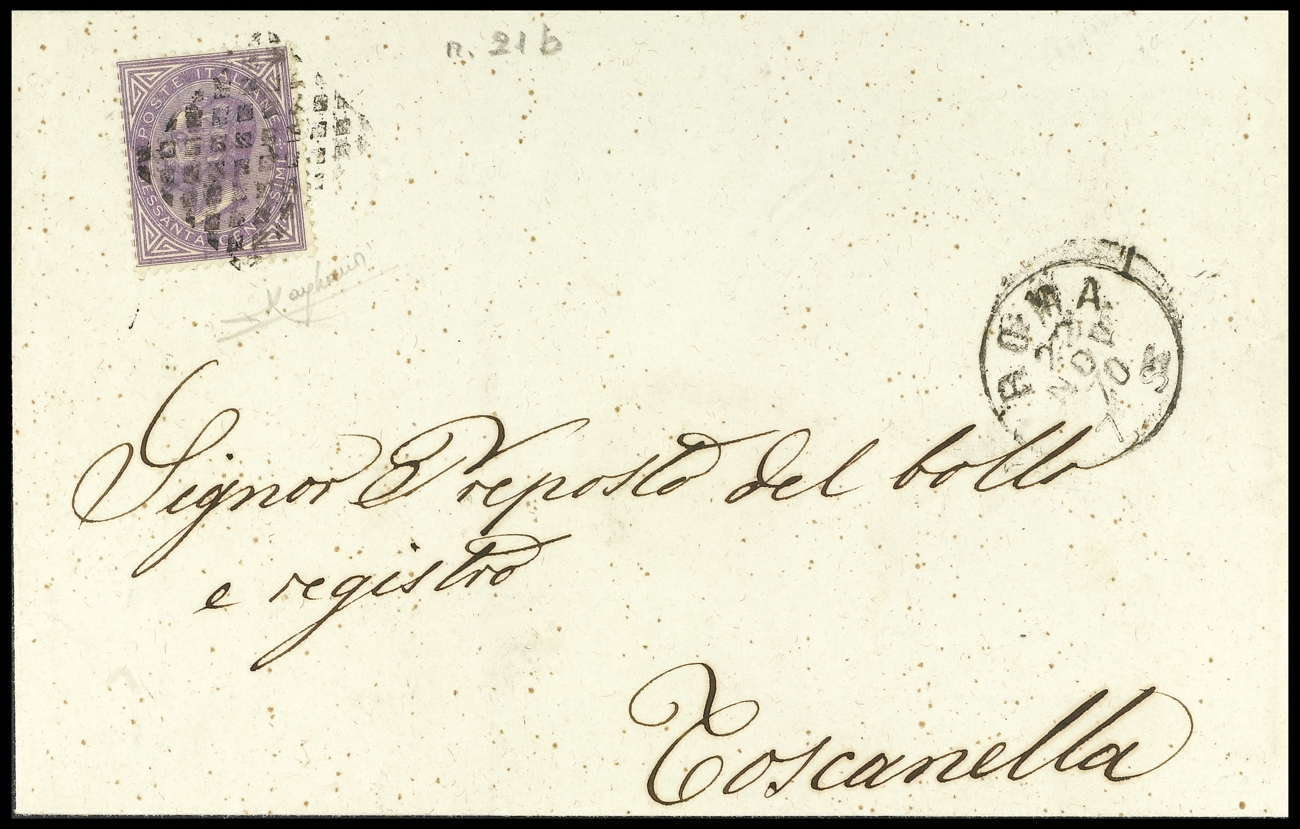 n. 21 b
POSTE ITALIANE
ESSANTA CENTESIMI
ROMA
NOV
70
Signor Preposto del bollo
e registro
Toscanella